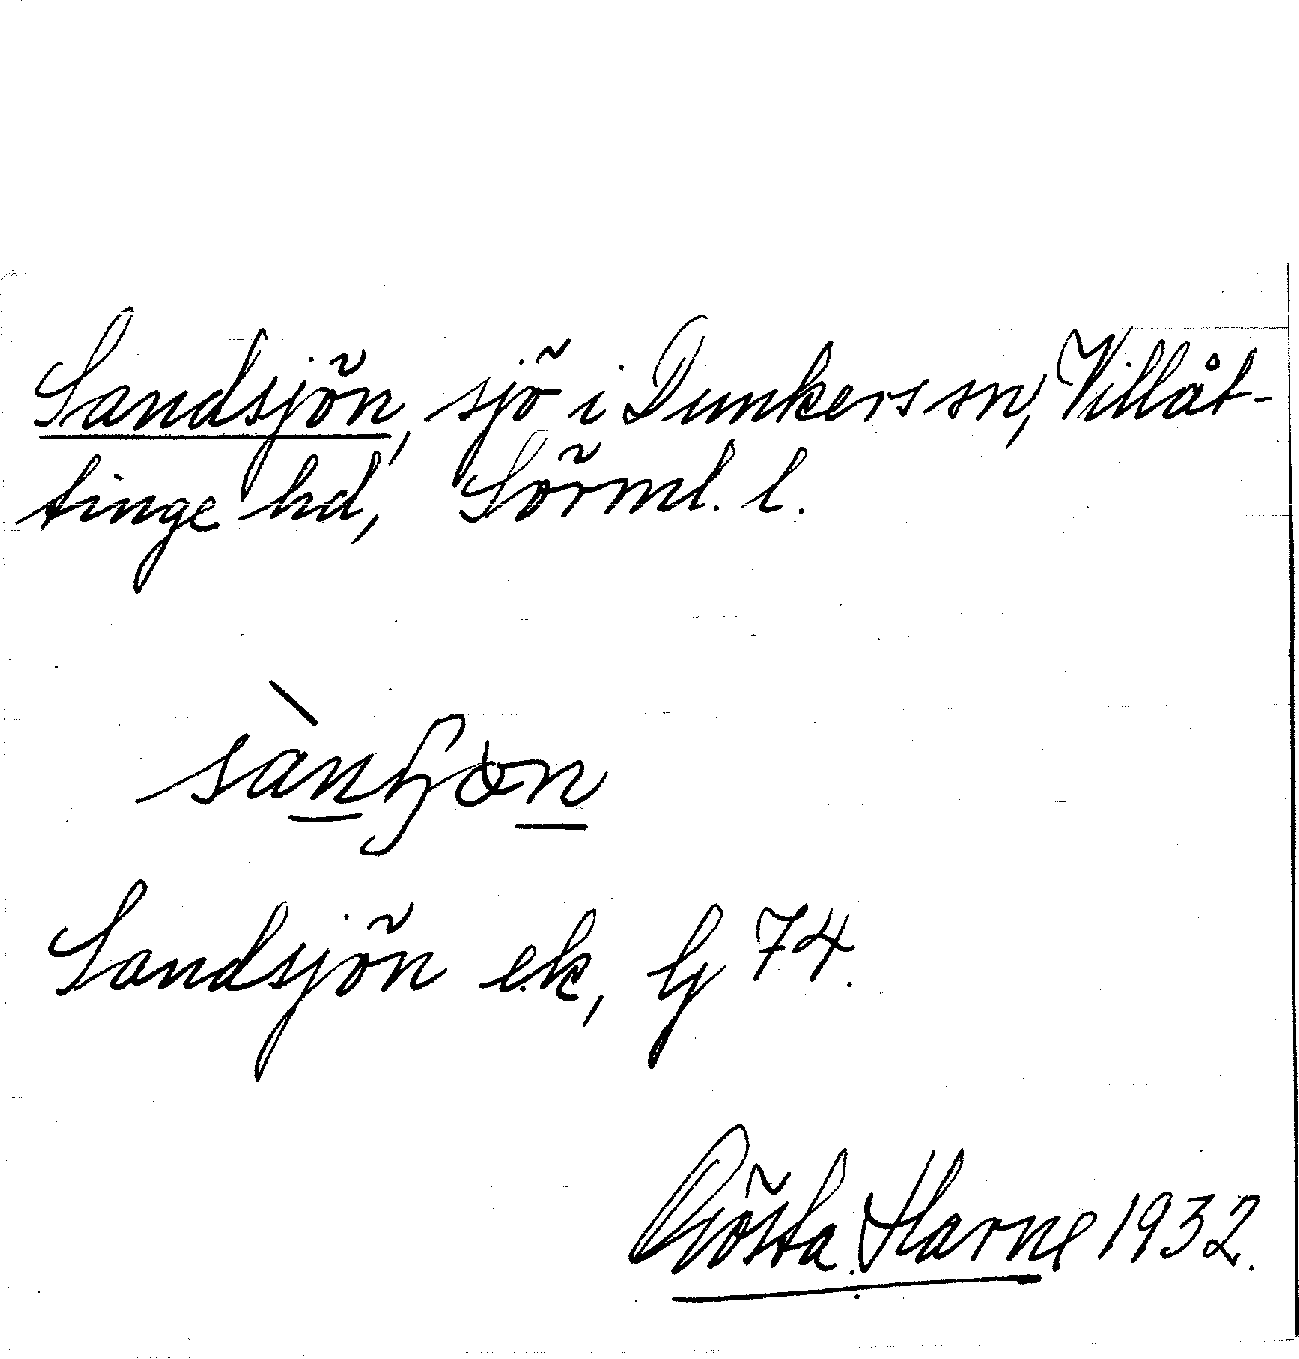 Sandsjön, sjö i Dunkers sn, Villåt-
tinge hd, Sörml. l.
Sandsjön ek, G 74.
Gösta Harne 1932.